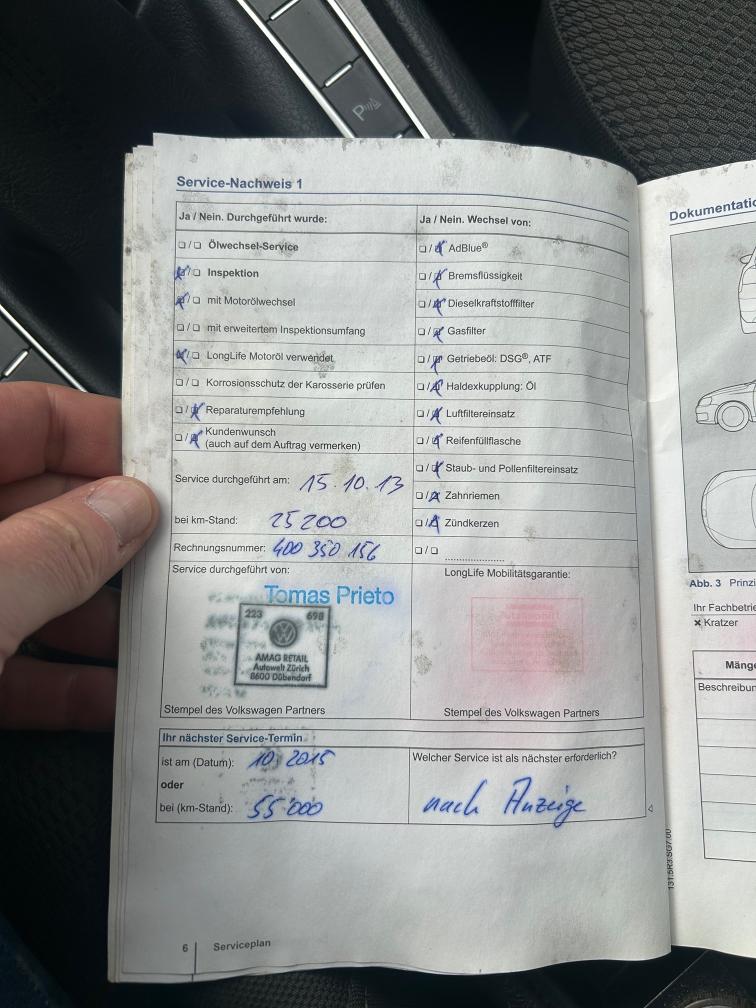 Service-Nachweis 1
Ja / Nein. Durchgeführt wurde:
❏ / ❏ Ölwechsel-Service
❏ / ❏ Inspektion
❏ / ❏ mit Motorölwechsel
❏ / ❏ mit erweitertem Inspektionsumfang
❏ / ❏ LongLife Motoröl verwendet
❏ / ❏ Korrosionsschutz der Karosserie prüfen
❏ / ❏ Reparaturempfehlung
❏ / ❏ Kundenwunsch
(auch auf dem Auftrag vermerken)
Service durchgeführt am: 15.10.13
bei km-Stand: 25200
Rechnungsnummer: 400 350 156
Service durchgeführt von:
Tomas Prieto
223 698
AMAG RETAIL
Autowelt Zürich
8600 Dübendorf
Stempel des Volkswagen Partners
Ja / Nein. Wechsel von:
❏ / ❏ AdBlue®
❏ / ❏ Bremsflüssigkeit
❏ / ❏ Dieselkraftstofffilter
❏ / ❏ Gasfilter
❏ / ❏ Getriebeöl: DSG®, ATF
❏ / ❏ Haldexkupplung: Öl
❏ / ❏ Luftfiltereinsatz
❏ / ❏ Reifenfüllflasche
❏ / ❏ Staub- und Pollenfiltereinsatz
❏ / ❏ Zahnriemen
❏ / ❏ Zündkerzen
❏ / ❏ ....................
LongLife Mobilitätsgarantie:
Stempel des Volkswagen Partners
Ihr nächster Service-Termin
ist am (Datum): 10. 2015
oder
bei (km-Stand): 55'000
Welcher Service ist als nächster erforderlich?
nach Anzeige
6 Serviceplan
131.5R3.SG7.00
Abb. 3 Prinzi
Ihr Fachbetrie
× Kratzer
Mänge
Beschreibun
Dokumentatio